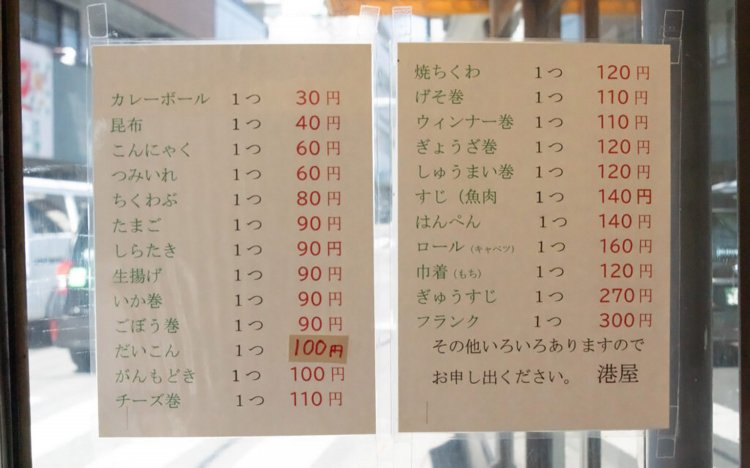 カレーボール 1つ 30円
昆布 1つ 40円
こんにゃく 1つ 60円
つみいれ 1つ 60円
ちくわぶ 1つ 80円
たまご 1つ 90円
しらたき 1つ 90円
生揚げ 1つ 90円
いか巻 1つ 90円
ごぼう巻 1つ 90円
だいこん 1つ 100円
がんもどき 1つ 100円
チーズ巻 1つ 110円
焼ちくわ 1つ 120円
げそ巻 1つ 110円
ウィンナー巻 1つ 110円
ぎょうざ巻 1つ 120円
しゅうまい巻 1つ 120円
すじ（魚肉 1つ 140円
はんぺん 1つ 140円
ロール（キャベツ） 1つ 160円
巾着（もち） 1つ 120円
ぎゅうすじ 1つ 270円
フランク 1つ 300円
その他いろいろありますので
お申し出ください。 港屋